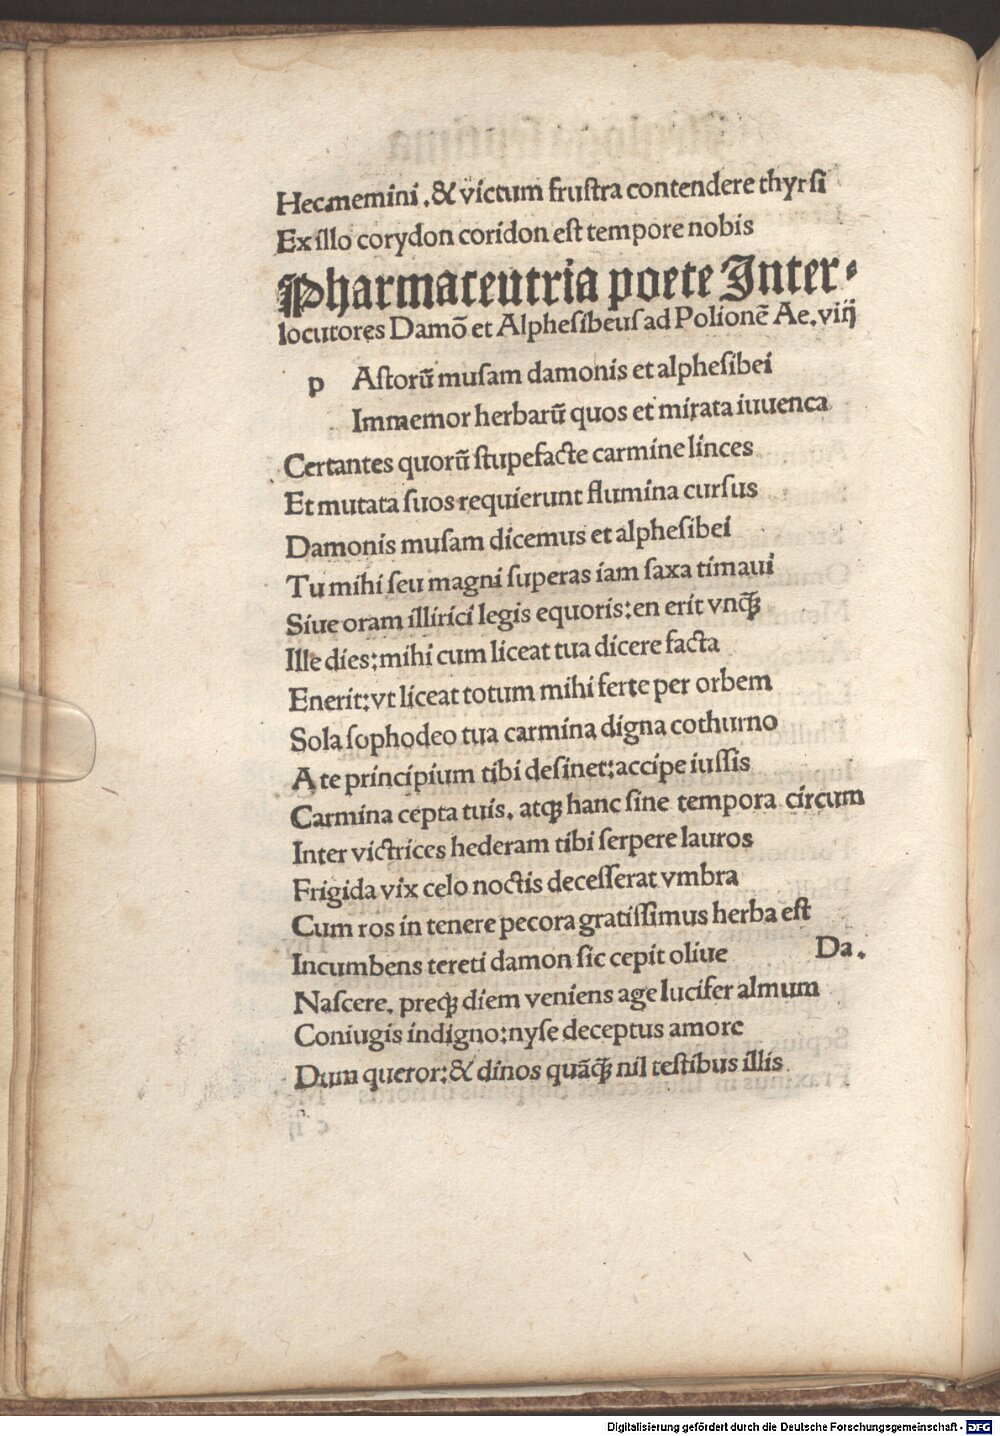 Hec memini .& victum frustra contendere thyrsi
Ex illo corydon coridon est tempore nobis
Pharmaceutria poete Inter-
locutores Damō et Alphesibeus ad Polionē Ae. viij
p Astorū musam damonis et alphesibei
Immemor herbarū quos et mirata iuuenca
Certantes quorū stupefacte carmine linces
Et mutata suos requierunt flumina cursus
Damonis musam dicemus et alphesibei
Tu mihi seu magni superas iam saxa timaui
Siue oram illirici legis equoris: en erit vnq̄ꝫ
Ille dies: mihi cum liceat tua dicere facta
Enerit: vt liceat totum mihi ferte per orbem
Sola sophodeo tua carmina digna cothurno
A te principium tibi desinet: accipe iussis
Carmina cepta tuis. atqꝫ hanc sine tempora circum
Inter victrices hederam tibi serpere lauros
Frigida vix celo noctis decesserat vmbra
Cum ros in tenere pecora gratissimus herba est
Incumbens tereti damon sic cepit oliue Da.
Nascere. preqꝫ diem veniens age lucifer almum
Coniugis indigno: nyse deceptus amore
Dum queror: & dinos quāq̄ꝫ nil testibus illis
Digitalisierung gefördert durch die Deutsche Forschungsgemeinschaft - DFG